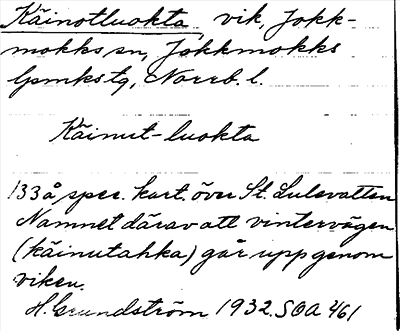 Käinotluokta, vik, Jokk-
mokks sn, Jokkmokks
lpmkstg, Norrb. l.
Käinut-luokta
133 å spec. kart. över St. Lulevatten
Namnet därav att vintervägen
(käinutahka) går upp genom
viken.
H. Grundström 1932. SOA 461